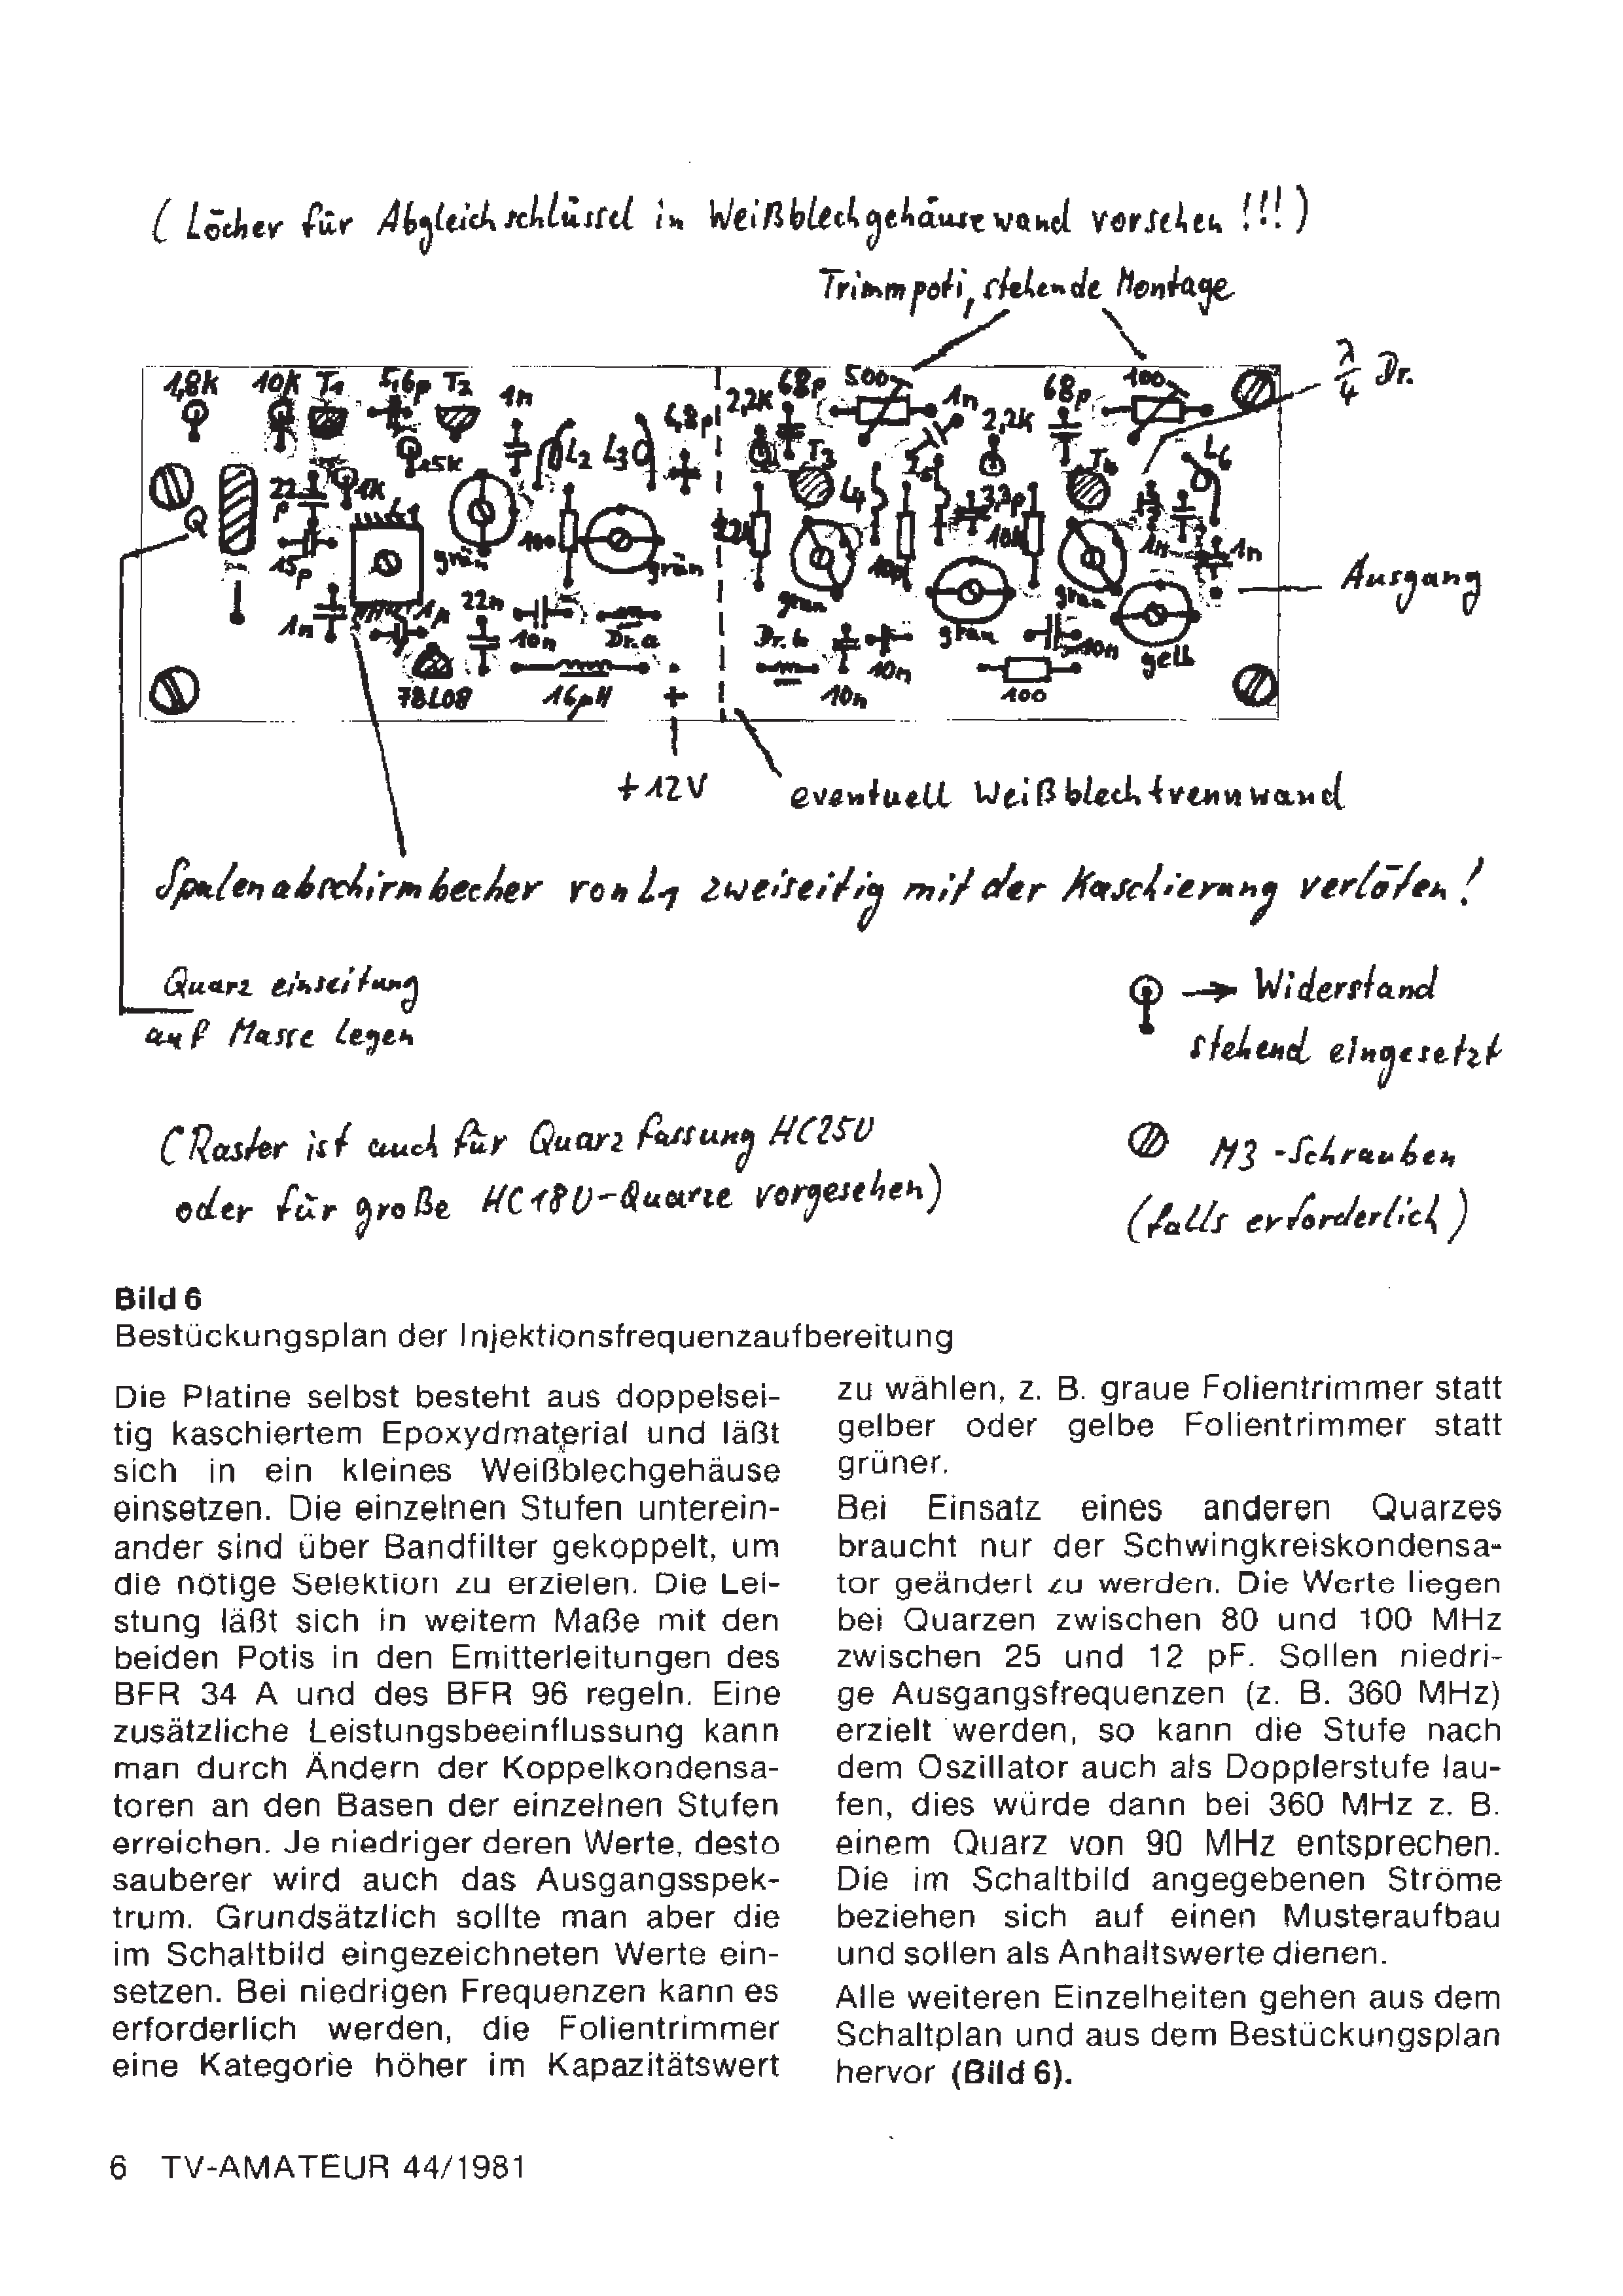 ( Löcher für Abgleichschlüssel in Weißblechgehäusewand vorsehen !!! )
Trimmpoti, stehende Montage
λ/4 Dr.
1,8k 10k T1 5,6p T2 1n
6,8p 2,2k 68p 500 1n 2,2k 68p 100
L2 L3 T3 L6
1,5k
Q 22p 1k L1 L4 L5
15p grün 100 grün
1n 22n 10n Dr.a
grün grün grün gelb
Dr.b 10n 10n 100 10n
1n 1n
78L08 16µH +
Ausgang
+12V
eventuell Weißblechtrennwand
Spulenabschirmbecher von L1 zweiseitig mit der Kaschierung verlöten!
Quarz einseitung
auf Masse legen
→ Widerstand
stehend eingesetzt
(Raster ist auch für Quarzfassung HC25U
oder für große HC18U-Quarze vorgesehen)
M3-Schrauben
(falls erforderlich)
Bild 6
Bestückungsplan der Injektionsfrequenzaufbereitung
Die Platine selbst besteht aus doppelsei-
tig kaschiertem Epoxydmaterial und läßt
sich in ein kleines Weißblechgehäuse
einsetzen. Die einzelnen Stufen unterein-
ander sind über Bandfilter gekoppelt, um
die nötige Selektion zu erzielen. Die Lei-
stung läßt sich in weitem Maße mit den
beiden Potis in den Emitterleitungen des
BFR 34 A und des BFR 96 regeln. Eine
zusätzliche Leistungsbeeinflussung kann
man durch Ändern der Koppelkondensa-
toren an den Basen der einzelnen Stufen
erreichen. Je niedriger deren Werte, desto
sauberer wird auch das Ausgangsspek-
trum. Grundsätzlich sollte man aber die
im Schaltbild eingezeichneten Werte ein-
setzen. Bei niedrigen Frequenzen kann es
erforderlich werden, die Folientrimmer
eine Kategorie höher im Kapazitätswert
zu wählen, z. B. graue Folientrimmer statt
gelber oder gelbe Folientrimmer statt
grüner.
Bei Einsatz eines anderen Quarzes
braucht nur der Schwingkreiskondensa-
tor geändert zu werden. Die Werte liegen
bei Quarzen zwischen 80 und 100 MHz
zwischen 25 und 12 pF. Sollen niedri-
ge Ausgangsfrequenzen (z. B. 360 MHz)
erzielt werden, so kann die Stufe nach
dem Oszillator auch als Dopplerstufe lau-
fen, dies würde dann bei 360 MHz z. B.
einem Quarz von 90 MHz entsprechen.
Die im Schaltbild angegebenen Ströme
beziehen sich auf einen Musteraufbau
und sollen als Anhaltswerte dienen.
Alle weiteren Einzelheiten gehen aus dem
Schaltplan und aus dem Bestückungsplan
hervor (Bild 6).
6 TV-AMATEUR 44/1981